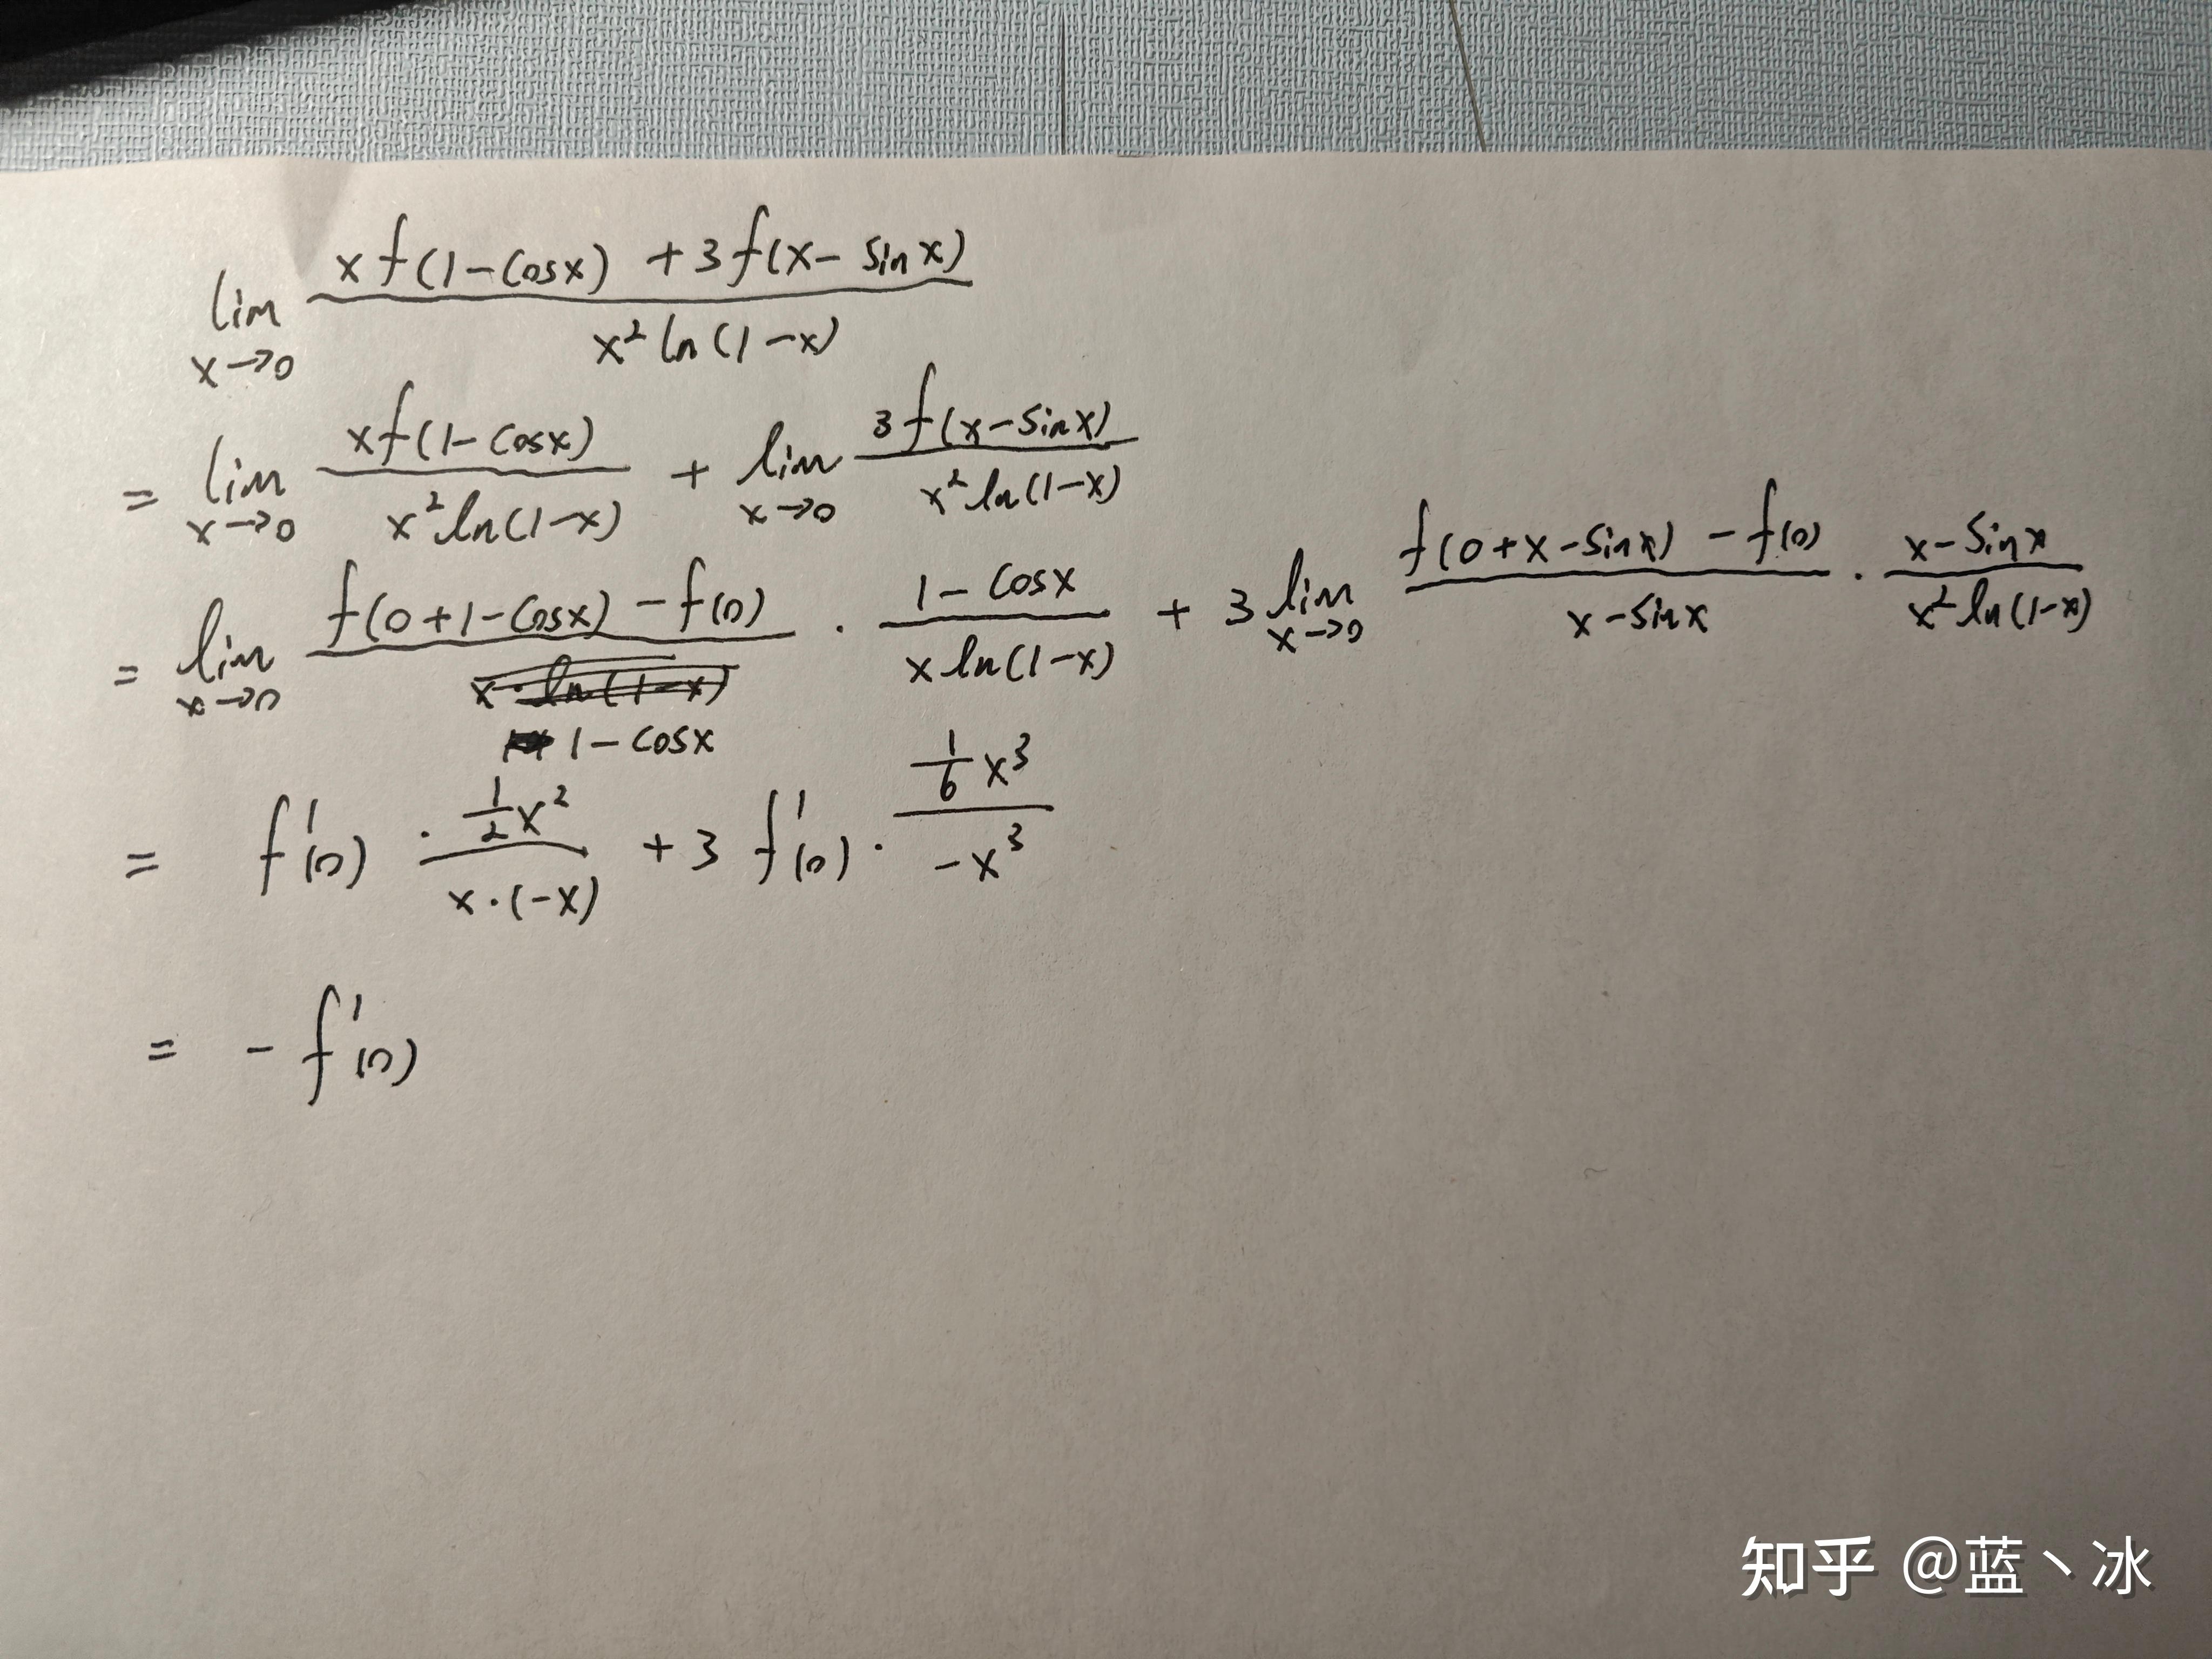 lim x→0 (x f(1-cosx) + 3f(x-sinx)) / (x² ln(1-x))
= lim x→0 (x f(1-cosx)) / (x² ln(1-x)) + lim x→0 (3f(x-sinx)) / (x² ln(1-x))
= lim x→0 (f(0+1-cosx) - f(0)) / (1-cosx) · (1-cosx) / (x ln(1-x)) + 3 lim x→0 (f(0+x-sinx) - f(0)) / (x-sinx) · (x-sinx) / (x² ln(1-x))
= f'(0) · (1/2 x²) / (x·(-x)) + 3 f'(0) · (1/6 x³) / (-x³)
= - f'(0)
知乎 @蓝丶冰